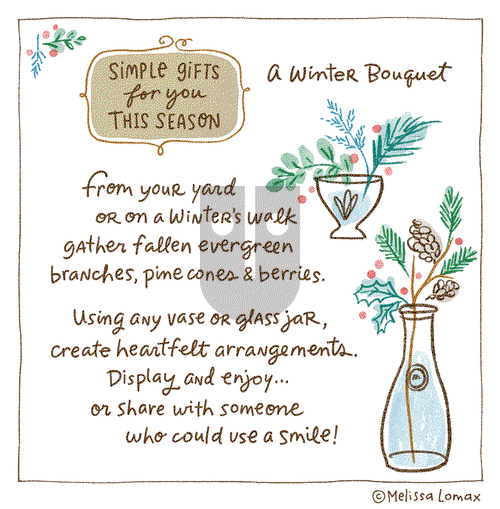 Simple Gifts
for you
This Season
A Winter Bouquet
From your yard
or on a winter's walk
gather fallen evergreen
branches, pine cones & berries.
Using any vase or glass jar,
create heartfelt arrangements.
Display and enjoy...
or share with someone
who could use a smile!
©Melissa Lomax